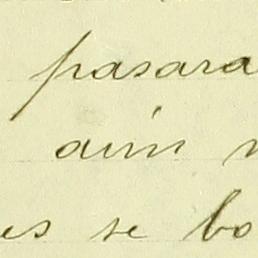 pasara
aún
es se bo